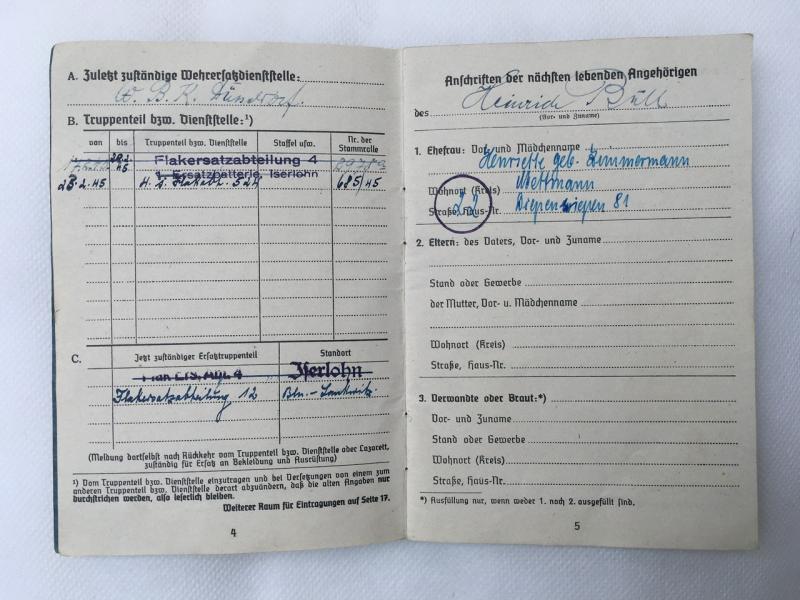 A. Zuletzt zuständige Wehrersatzdienststelle:
W. B. K.
B. Truppenteil bzw. Dienststelle:¹)
von bis Truppenteil bzw. Dienststelle Staffel usw. Nr. der Stammrolle
45 Flakersatzabteilung 4
1. Ersatzbatterie, Iserlohn
23.2.45 524 685/45
C. Jetzt zuständiger Ersatztruppenteil Standort
Iserlohn
Flakersatzabteilung 12 Bln.- Lankwitz
(Meldung dortselbst nach Rückkehr vom Truppenteil bzw. Dienststelle oder Lazarett,
zuständig für Ersatz an Bekleidung und Ausrüstung)
¹) Vom Truppenteil bzw. Dienststelle einzutragen und bei Versetzungen von einem zum
anderen Truppenteil bzw. Dienststelle derart abzuändern, daß die alten Angaben nur
durchstrichen werden, also leserlich bleiben.
Weiterer Raum für Eintragungen auf Seite 17.
4
Anschriften der nächsten lebenden Angehörigen
des Heinrich Büll
(Vor- und Zuname)
1. Ehefrau: Vor- und Mädchenname
Henriette geb. Zimmermann
Wohnort (Kreis) Mettmann
Straße, Haus-Nr. 81
22
2. Eltern: des Vaters, Vor- und Zuname
Stand oder Gewerbe
der Mutter, Vor- u. Mädchenname
Wohnort (Kreis)
Straße, Haus-Nr.
3. Verwandte oder Braut:*)
Vor- und Zuname
Stand oder Gewerbe
Wohnort (Kreis)
Straße, Haus-Nr.
*) Ausfüllung nur, wenn weder 1. noch 2. ausgefüllt sind.
5